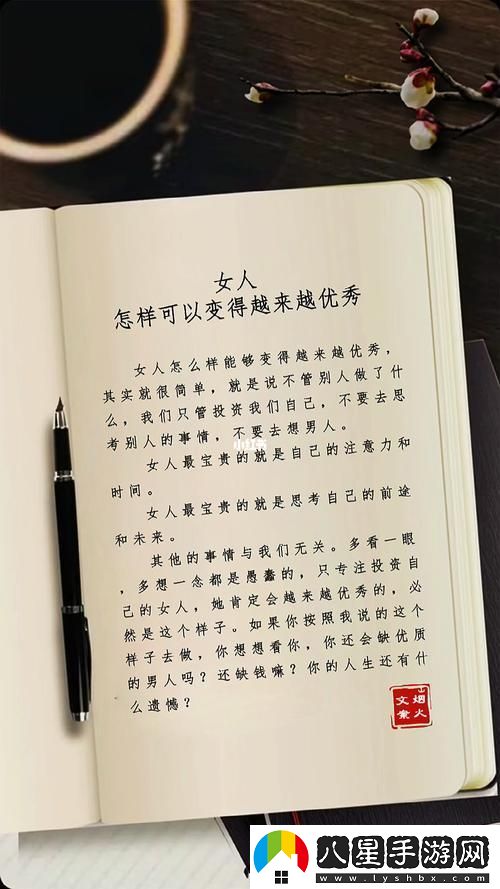 女人
怎样可以变得越来越优秀
女人怎么样能够变得越来越优秀，
其实就很简单，就是说不管别人做了什
么，我们只管投资我们自己，不要去思
考别人的事情，不要去想男人。
小红书
女人最宝贵的就是自己的注意力和
时间。
女人最宝贵的就是思考自己的前途
和未来。
其他的事情与我们无关。多看一眼
，多想一念都是愚蠢的，只专注投资自
己的女人，她肯定会越来越优秀的，必
然是这个样子。如果你按照我说的这个
样子去做，你想想看你，你还会缺优质
的男人吗？还缺钱嘛？你的人生还有什
么遗憾？
烟火
文案
八星手游网
www.lyshbx.com